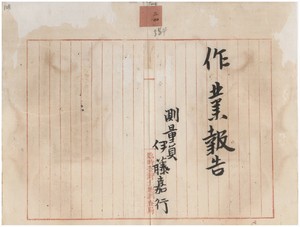 作業報告
測量員
伊藤嘉行